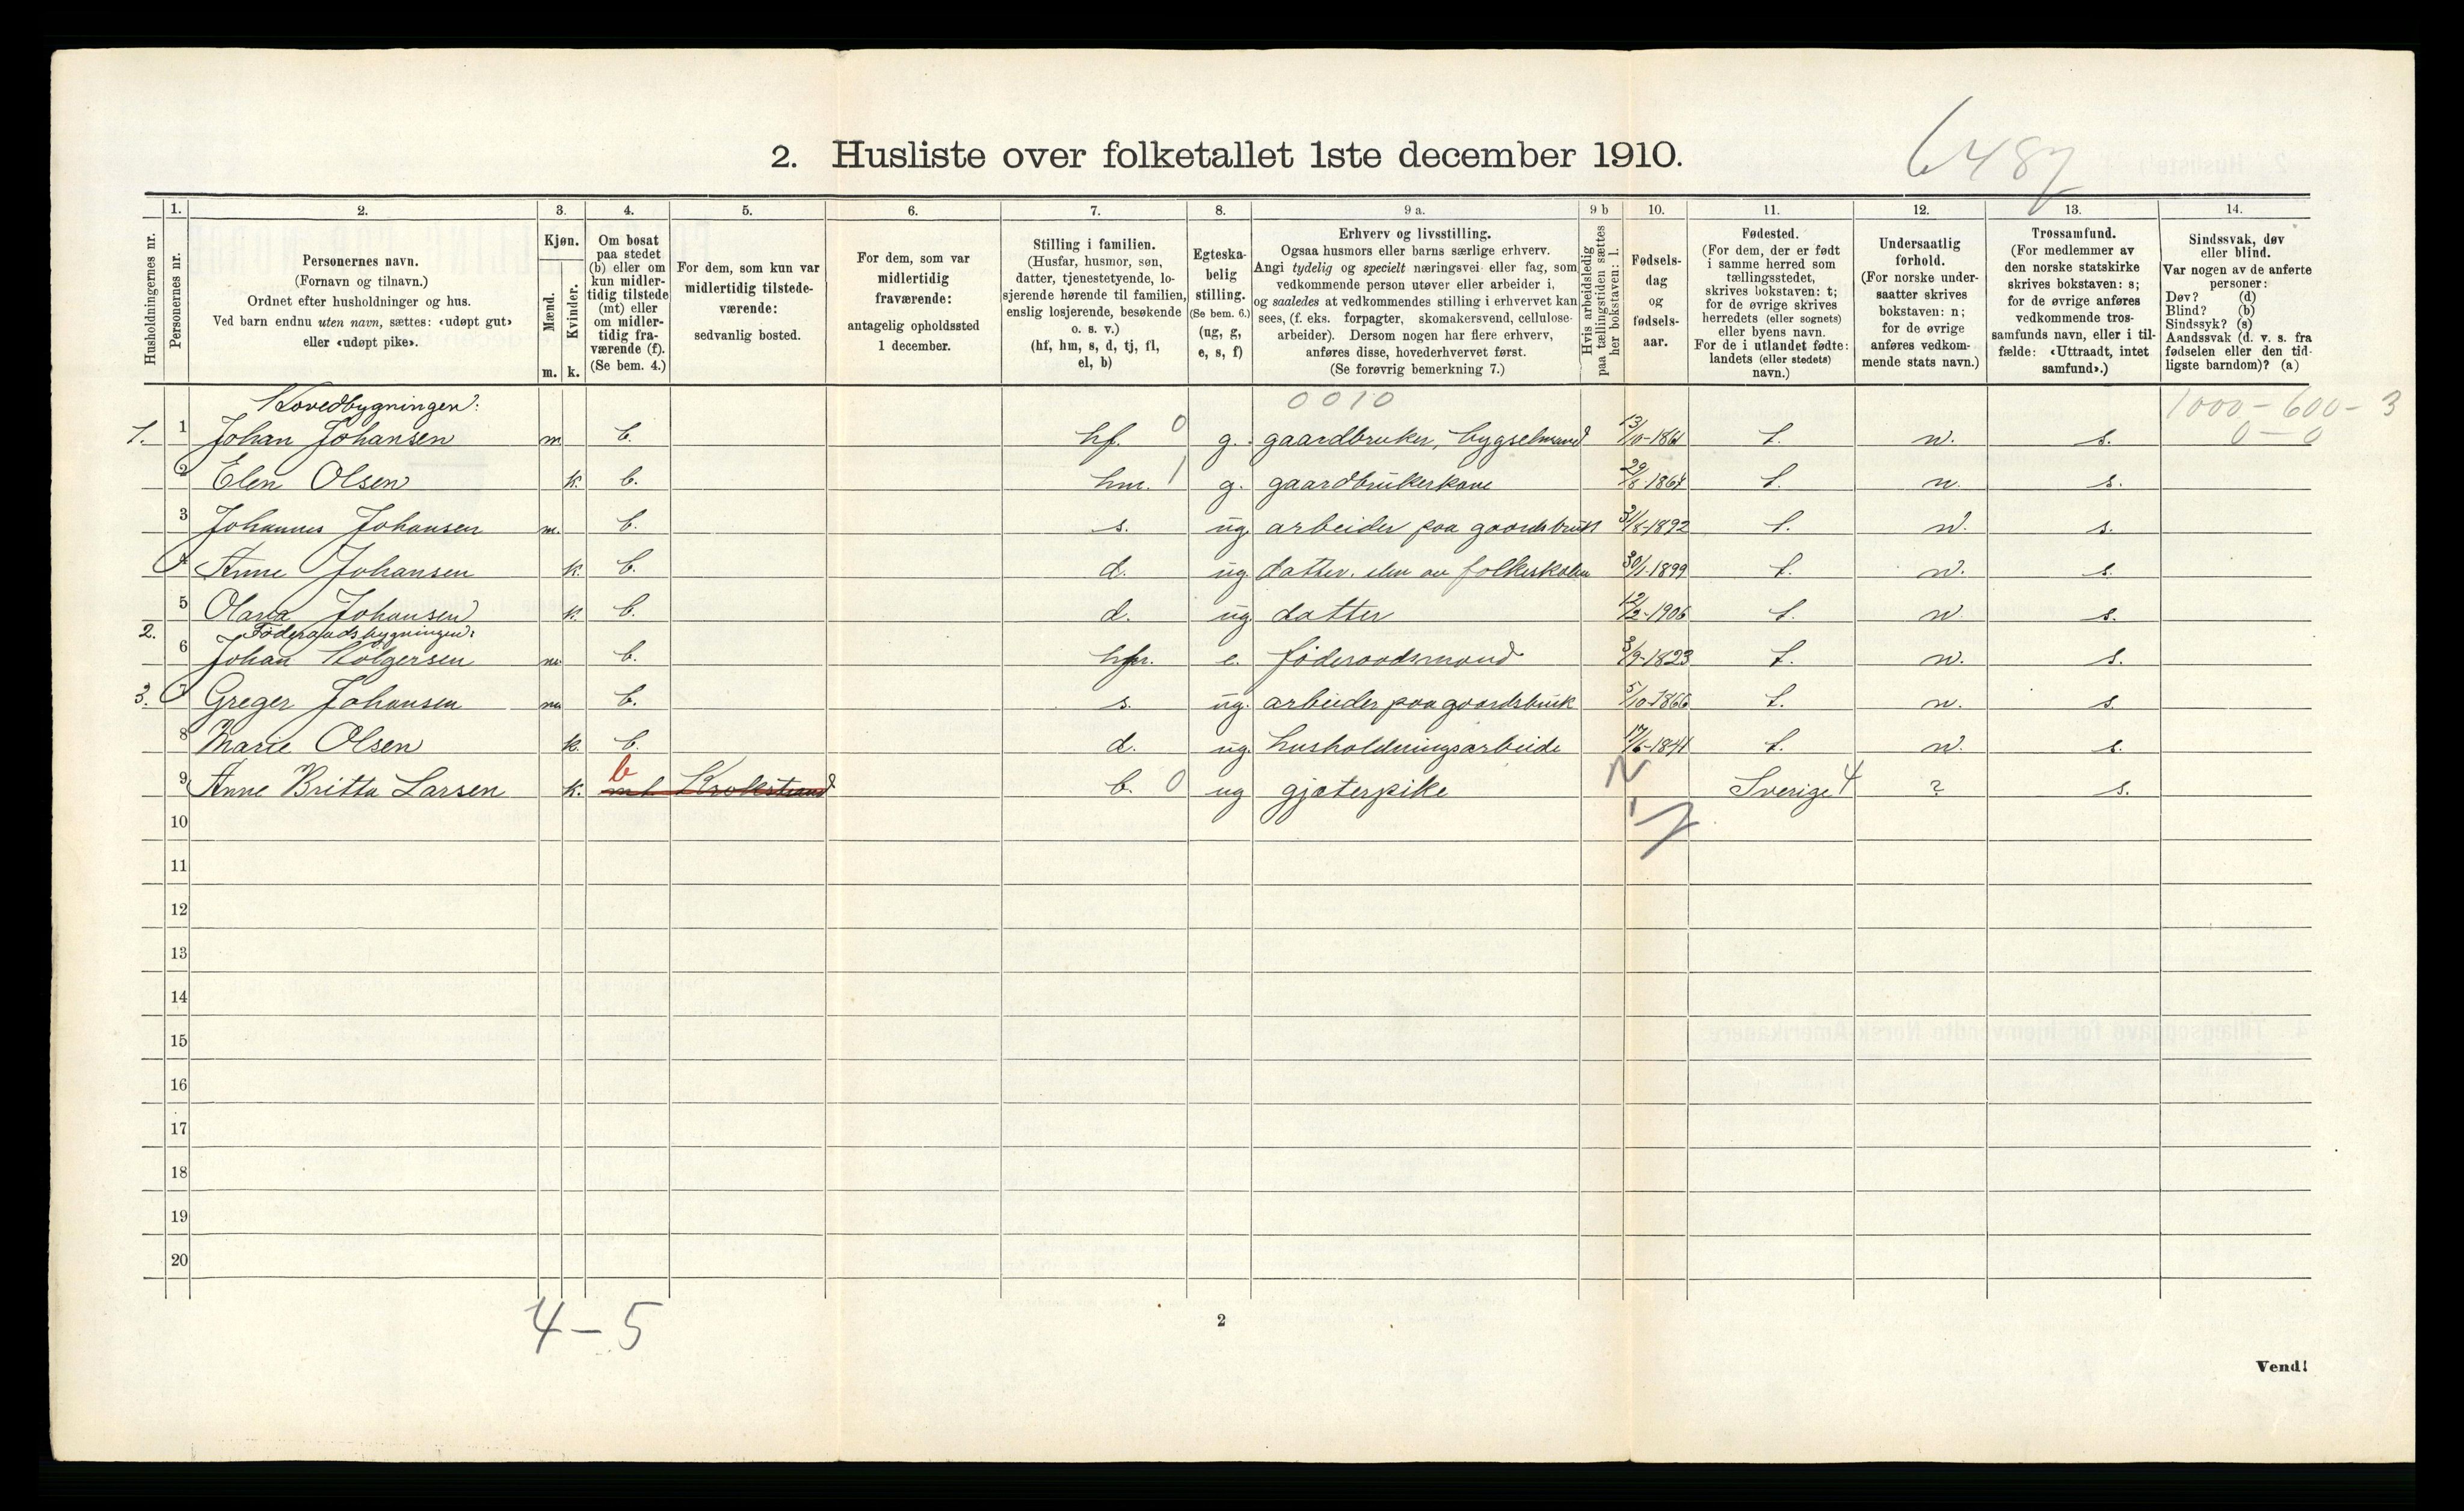 2. Husliste over folketallet 1ste december 1910.
6487
1. 2. 3. 4. 5. 6. 7. 8. 9 a. 9 b 10. 11. 12. 13. 14.
Husholdningernes nr.
Personernes nr.
Personernes navn.
(Fornavn og tilnavn.)
Ordnet efter husholdninger og hus.
Ved barn endnu uten navn, sættes: «udøpt gut»
eller «udøpt pike».
Kjøn.
Mænd.
Kvinder.
m. k.
Om bosat
paa stedet
(b) eller om
kun midler-
tidig tilstede
(mt) eller
om midler-
tidig fra-
værende (f).
(Se bem. 4.)
For dem, som kun var
midlertidig tilstede-
værende:
sedvanlig bosted.
For dem, som var
midlertidig
fraværende:
antagelig opholdssted
1 december.
Stilling i familien.
(Husfar, husmor, søn,
datter, tjenestetyende, lo-
sjerende hørende til familien,
enslig losjerende, besøkende
o. s. v.)
(hf, hm, s, d, tj, fl,
el, b)
Egteska-
belig
stilling.
(Se bem. 6.)
(ug, g,
e, s, f)
Erhverv og livsstilling.
Ogsaa husmors eller barns særlige erhverv.
Angi tydelig og specielt næringsvei eller fag, som
vedkommende person utøver eller arbeider i,
og saaledes at vedkommendes stilling i erhvervet kan
sees, (f. eks. forpagter, skomakersvend, cellulose-
arbeider). Dersom nogen har flere erhverv,
anføres disse, hovederhvervet først.
(Se forøvrig bemerkning 7.)
Hvis arbeidsledig
paa tællingstiden sættes
her bokstaven: l.
Fødsels-
dag
og
fødsels-
aar.
Fødested.
(For dem, der er født
i samme herred som
tællingsstedet,
skrives bokstaven: t;
for de øvrige skrives
herredets (eller sognets)
eller byens navn.
For de i utlandet fødte:
landets (eller stedets)
navn.)
Undersaatlig
forhold.
(For norske under-
saatter skrives
bokstaven: n;
for de øvrige
anføres vedkom-
mende stats navn.)
Trossamfund.
(For medlemmer av
den norske statskirke
skrives bokstaven: s;
for de øvrige anføres
vedkommende tros-
samfunds navn, eller i til-
fælde: «Uttraadt, intet
samfund».)
Sindssvak, døv
eller blind.
Var nogen av de anførte
personer:
Døv? (d)
Blind? (b)
Sindssyk? (s)
Aandssvak (d. v. s. fra
fødselen eller den tid-
ligste barndom)? (a)
Hovedbygningen: 0010 1000 - 600 - 3
1. 1 Johan Johansen m b. hf. 0 g. gaardbruker, bygselmand t. n. s. 0 - 0
2 Elen Olsen k. b. hm. 1 g. gaardbrukerkone t. n. s.
3 Johannes Johansen m. b. s. ug. arbeider paa gaardsbruk 31/8-1892 t. n. s.
4 Anne Johansen k. b. d. ug. datter. elev av folkeskolen 30/1-1899 t. n. s.
5 Olava Johansen k. b. d. ug. datter 12/2-1906 t. n. s.
2. Föderaadsbygningen:
6 Johan Holgersen m. b. e. föderaadsmand 3/9-1823 t. n. s.
3. 7 Greger Johansen m b. s. ug. arbeider paa gaardsbruk 5/10-1866 t. n. s.
8 Marie Olsen k. b. d. ug. husholdningsarbeide 17/6-1841 t. n. s.
9 Anne Britta Larsen k. b mt Krokstrand b. 0 ug gjæterpike Sverige 4 ? s.
10
11
12
13
14
15
16
17
18
19
20
4 - 5
2
Vend!